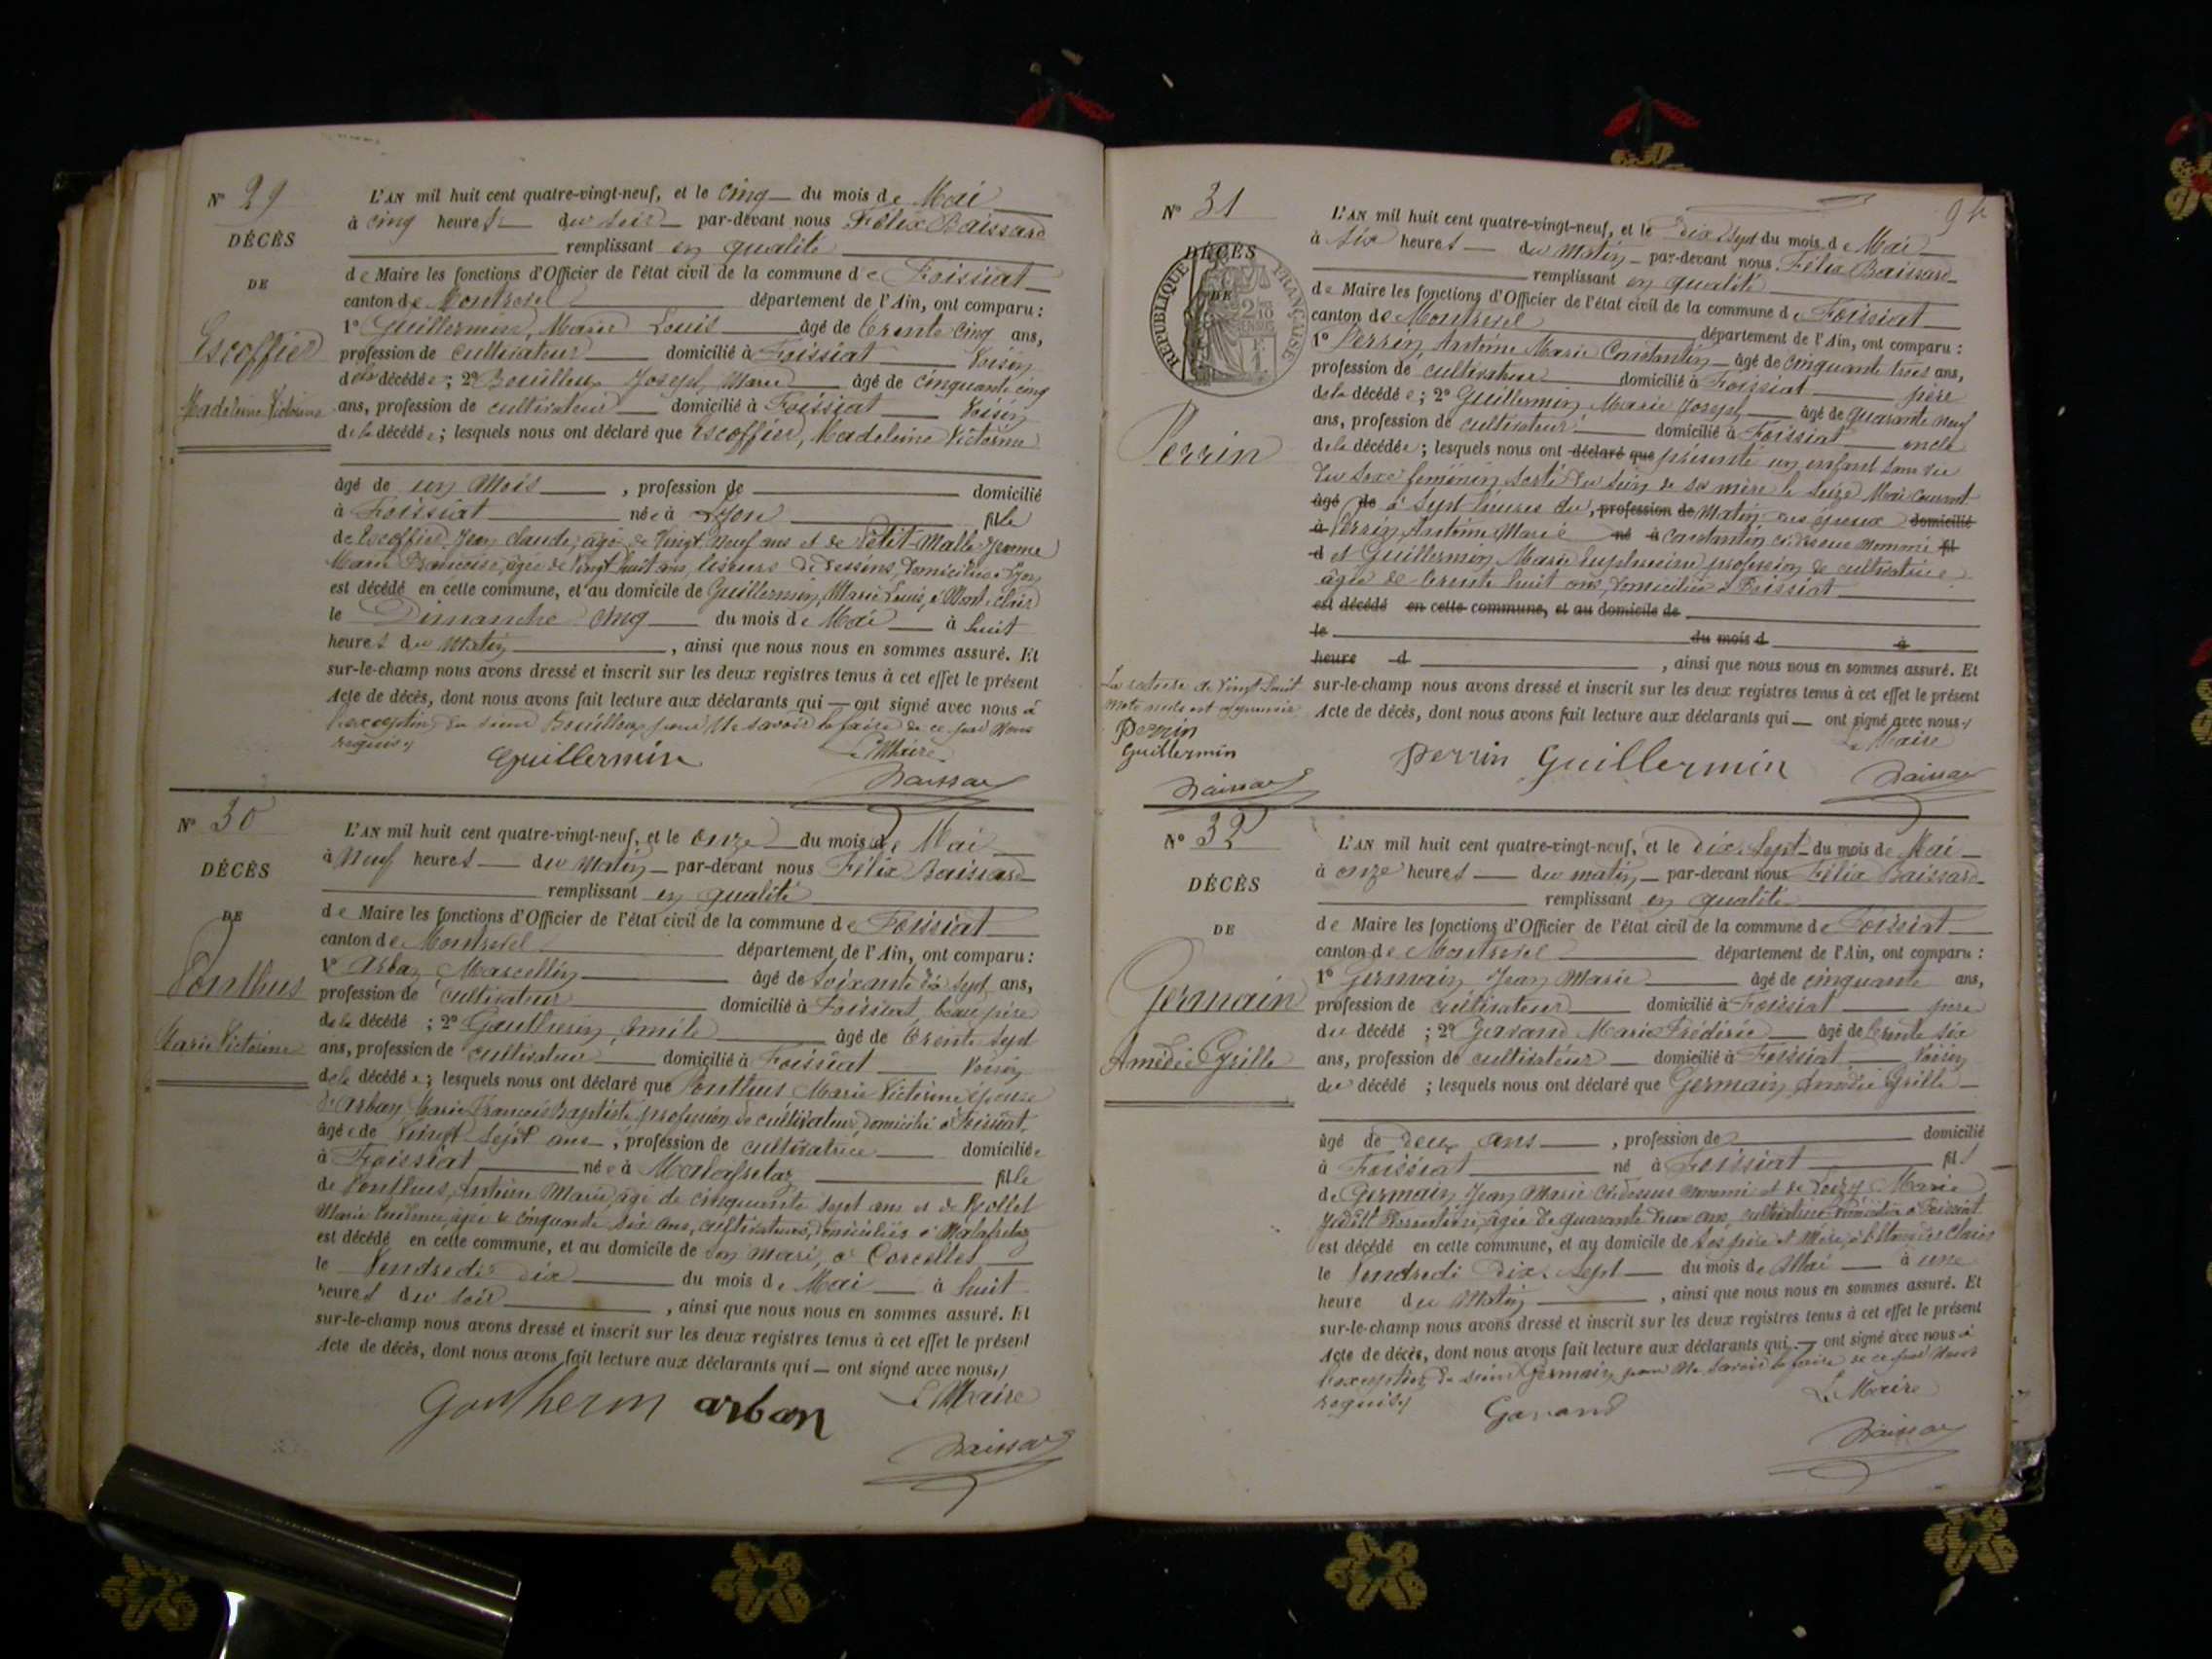 N° 29
DÉCÈS
DE
Escoffier
Madeleine Victorine
L'AN mil huit cent quatre-vingt-neuf, et le cinq du mois de Mai
à cinq heures du soir par-devant nous Félix Baissard
remplissant en qualité
de Maire les fonctions d'Officier de l'état civil de la commune de Foissiat
canton de Montrevel département de l'Ain, ont comparu :
1° Guillermin, Marie Louis âgé de trente cinq ans,
profession de cultivateur domicilié à Foissiat voisin
de la décédée ; 2° Bouilloux Joseph Marie âgé de cinquante cinq
ans, profession de cultivateur domicilié à Foissiat voisin
de la décédée ; lesquels nous ont déclaré que Escoffier, Madeleine Victorine
âgé de un mois , profession de domicilié
à Foissiat née à Lyon fille
de Escoffier Jean Claude, âgé de vingt neuf ans et de Petit-Malle Jeanne
Marie Françoise, âgée de vingt huit ans, liseurs de dessins, domiciliés à Lyon
est décédé en cette commune, et au domicile de Guillermin, Marie Louis, à Mont clair
le Dimanche cinq du mois de Mai à huit
heures du matin , ainsi que nous nous en sommes assuré. Et
sur-le-champ nous avons dressé et inscrit sur les deux registres tenus à cet effet le présent
Acte de décès, dont nous avons fait lecture aux déclarants qui ont signé avec nous à
l'exception du sieur Bouilloux pour ne savoir le faire de ce par nous
requis
Guillermin
Le Maire
Baissard
N° 30
DÉCÈS
DE
Ponthus
Marie Victorine
L'AN mil huit cent quatre-vingt-neuf, et le onze du mois de Mai
à neuf heures du matin par-devant nous Félix Baissard
remplissant en qualité
de Maire les fonctions d'Officier de l'état civil de la commune de Foissiat
canton de Montrevel département de l'Ain, ont comparu :
1° Arban, Marcellin âgé de soixante dix sept ans,
profession de cultivateur domicilié à Foissiat, beau père
de la décédé ; 2° Gautherin, Emile âgé de trente sept
ans, profession de cultivateur domicilié à Foissiat voisin
de la décédée ; lesquels nous ont déclaré que Ponthus Marie Victorine épouse
d'Arban Marie François Baptiste profession de cultivateur, domicilié à Foissiat
âgée de vingt-sept ans , profession de cultivatrice domiciliée
à Foissiat née à Malafretaz fille
de Ponthus, Antoine Marie, âgé de cinquante sept ans et de Rollet
Marie âgée de cinquante six ans, cultivateurs, domiciliés à Malafretaz
est décédé en cette commune, et au domicile de son mari, à Corcelles
le Vendredi dix du mois de Mai à huit
heures du soir , ainsi que nous nous en sommes assuré. Et
sur-le-champ nous avons dressé et inscrit sur les deux registres tenus à cet effet le présent
Acte de décès, dont nous avons fait lecture aux déclarants qui ont signé avec nous
gautherin arban
Le Maire
Baissard
N° 31
DÉCÈS
DE
RÉPUBLIQUE FRANÇAISE
Perrin
La rature de vingt huit
mots nuls est approuvée
perrin
Guillermin
Baissard
L'AN mil huit cent quatre-vingt-neuf, et le Dix Sept du mois de Mai
à six heures du matin par-devant nous Félix Baissard
remplissant en qualité
de Maire les fonctions d'Officier de l'état civil de la commune de Foissiat
canton de Montrevel département de l'Ain, ont comparu :
1° Perrin, Antoine Marie Constantin âgé de cinquante trois ans,
profession de cultivateur domicilié à Foissiat père
de la décédée ; 2° Guillermin Marie Joseph âgé de quarante neuf
ans, profession de cultivateur domicilié à Foissiat oncle
de la décédée ; lesquels nous ont déclaré que présenté un enfant sans vie
du sexe féminin sorti du sein de sa mère le seize Mai courant
âgé de à sept heures du , profession de matin des époux domicilié
à Perrin, Antoine Marie né à Constantin ci-dessus nommé fil
d et Guillermin, Marie Euphrosine profession de cultivatrice
âgée de trente huit ans, domiciliée à Foissiat
est décédé en cette commune, et au domicile de
le du mois d à
heure d , ainsi que nous nous en sommes assuré. Et
sur-le-champ nous avons dressé et inscrit sur les deux registres tenus à cet effet le présent
Acte de décès, dont nous avons fait lecture aux déclarants qui ont signé avec nous
Le Maire
perrin Guillermin
Baissard
N° 32
DÉCÈS
DE
Germain
Amédée Cyrille
L'AN mil huit cent quatre-vingt-neuf, et le dix sept du mois de Mai
à onze heures du matin par-devant nous Félix Baissard
remplissant en qualité
de Maire les fonctions d'Officier de l'état civil de la commune de Foissiat
canton de Montrevel département de l'Ain, ont comparu :
1° Germain, Jean Marie âgé de cinquante ans,
profession de cultivateur domicilié à Foissiat père
du décédé ; 2° Gavand Marie Frédéric âgé de trente six
ans, profession de cultivateur domicilié à Foissiat voisin
du décédé ; lesquels nous ont déclaré que Germain Amédée Cyrille
âgé de deux ans , profession de domicilié
à Foissiat né à Foissiat fils
de Germain Jean Marie ci-dessus nommé et de Marie
âgée de quarante deux ans, cultivatrice domiciliée à Foissiat
est décédé en cette commune, et au domicile de ses père et mère,
le Vendredi dix sept du mois de Mai à une
heure du matin , ainsi que nous nous en sommes assuré. Et
sur-le-champ nous avons dressé et inscrit sur les deux registres tenus à cet effet le présent
Acte de décès, dont nous avons fait lecture aux déclarants qui ont signé avec nous à
l'exception du sieur Germain pour ne savoir le faire de ce par nous
requis
Le Maire
Gavand
Baissard